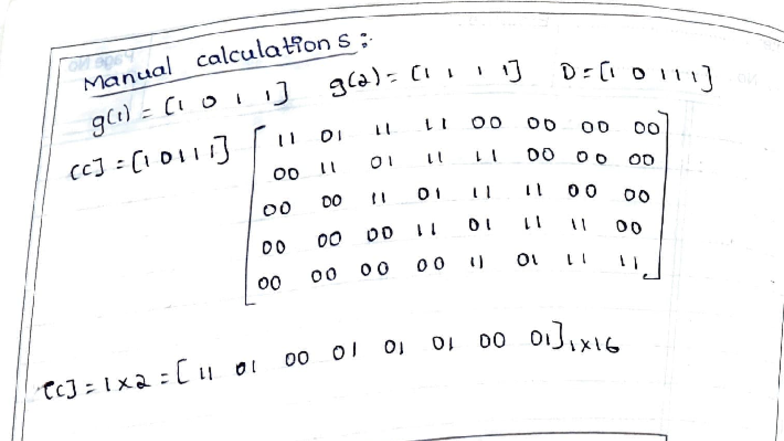 Manual calculations :
g(1) = [1 0 1 1] g(2) = [1 1 1 1] D = [1 0 1 1 1]
[C] = [1 0 1 1 1] [ 11 01 11 11 00 00 00 00
00 11 01 11 11 00 00 00
00 00 11 01 11 11 00 00
00 00 00 11 01 11 11 00
00 00 00 00 11 01 11 11 ]
[C] = 1 x 2 = [ 11 01 00 01 01 01 00 01 ] 1x16